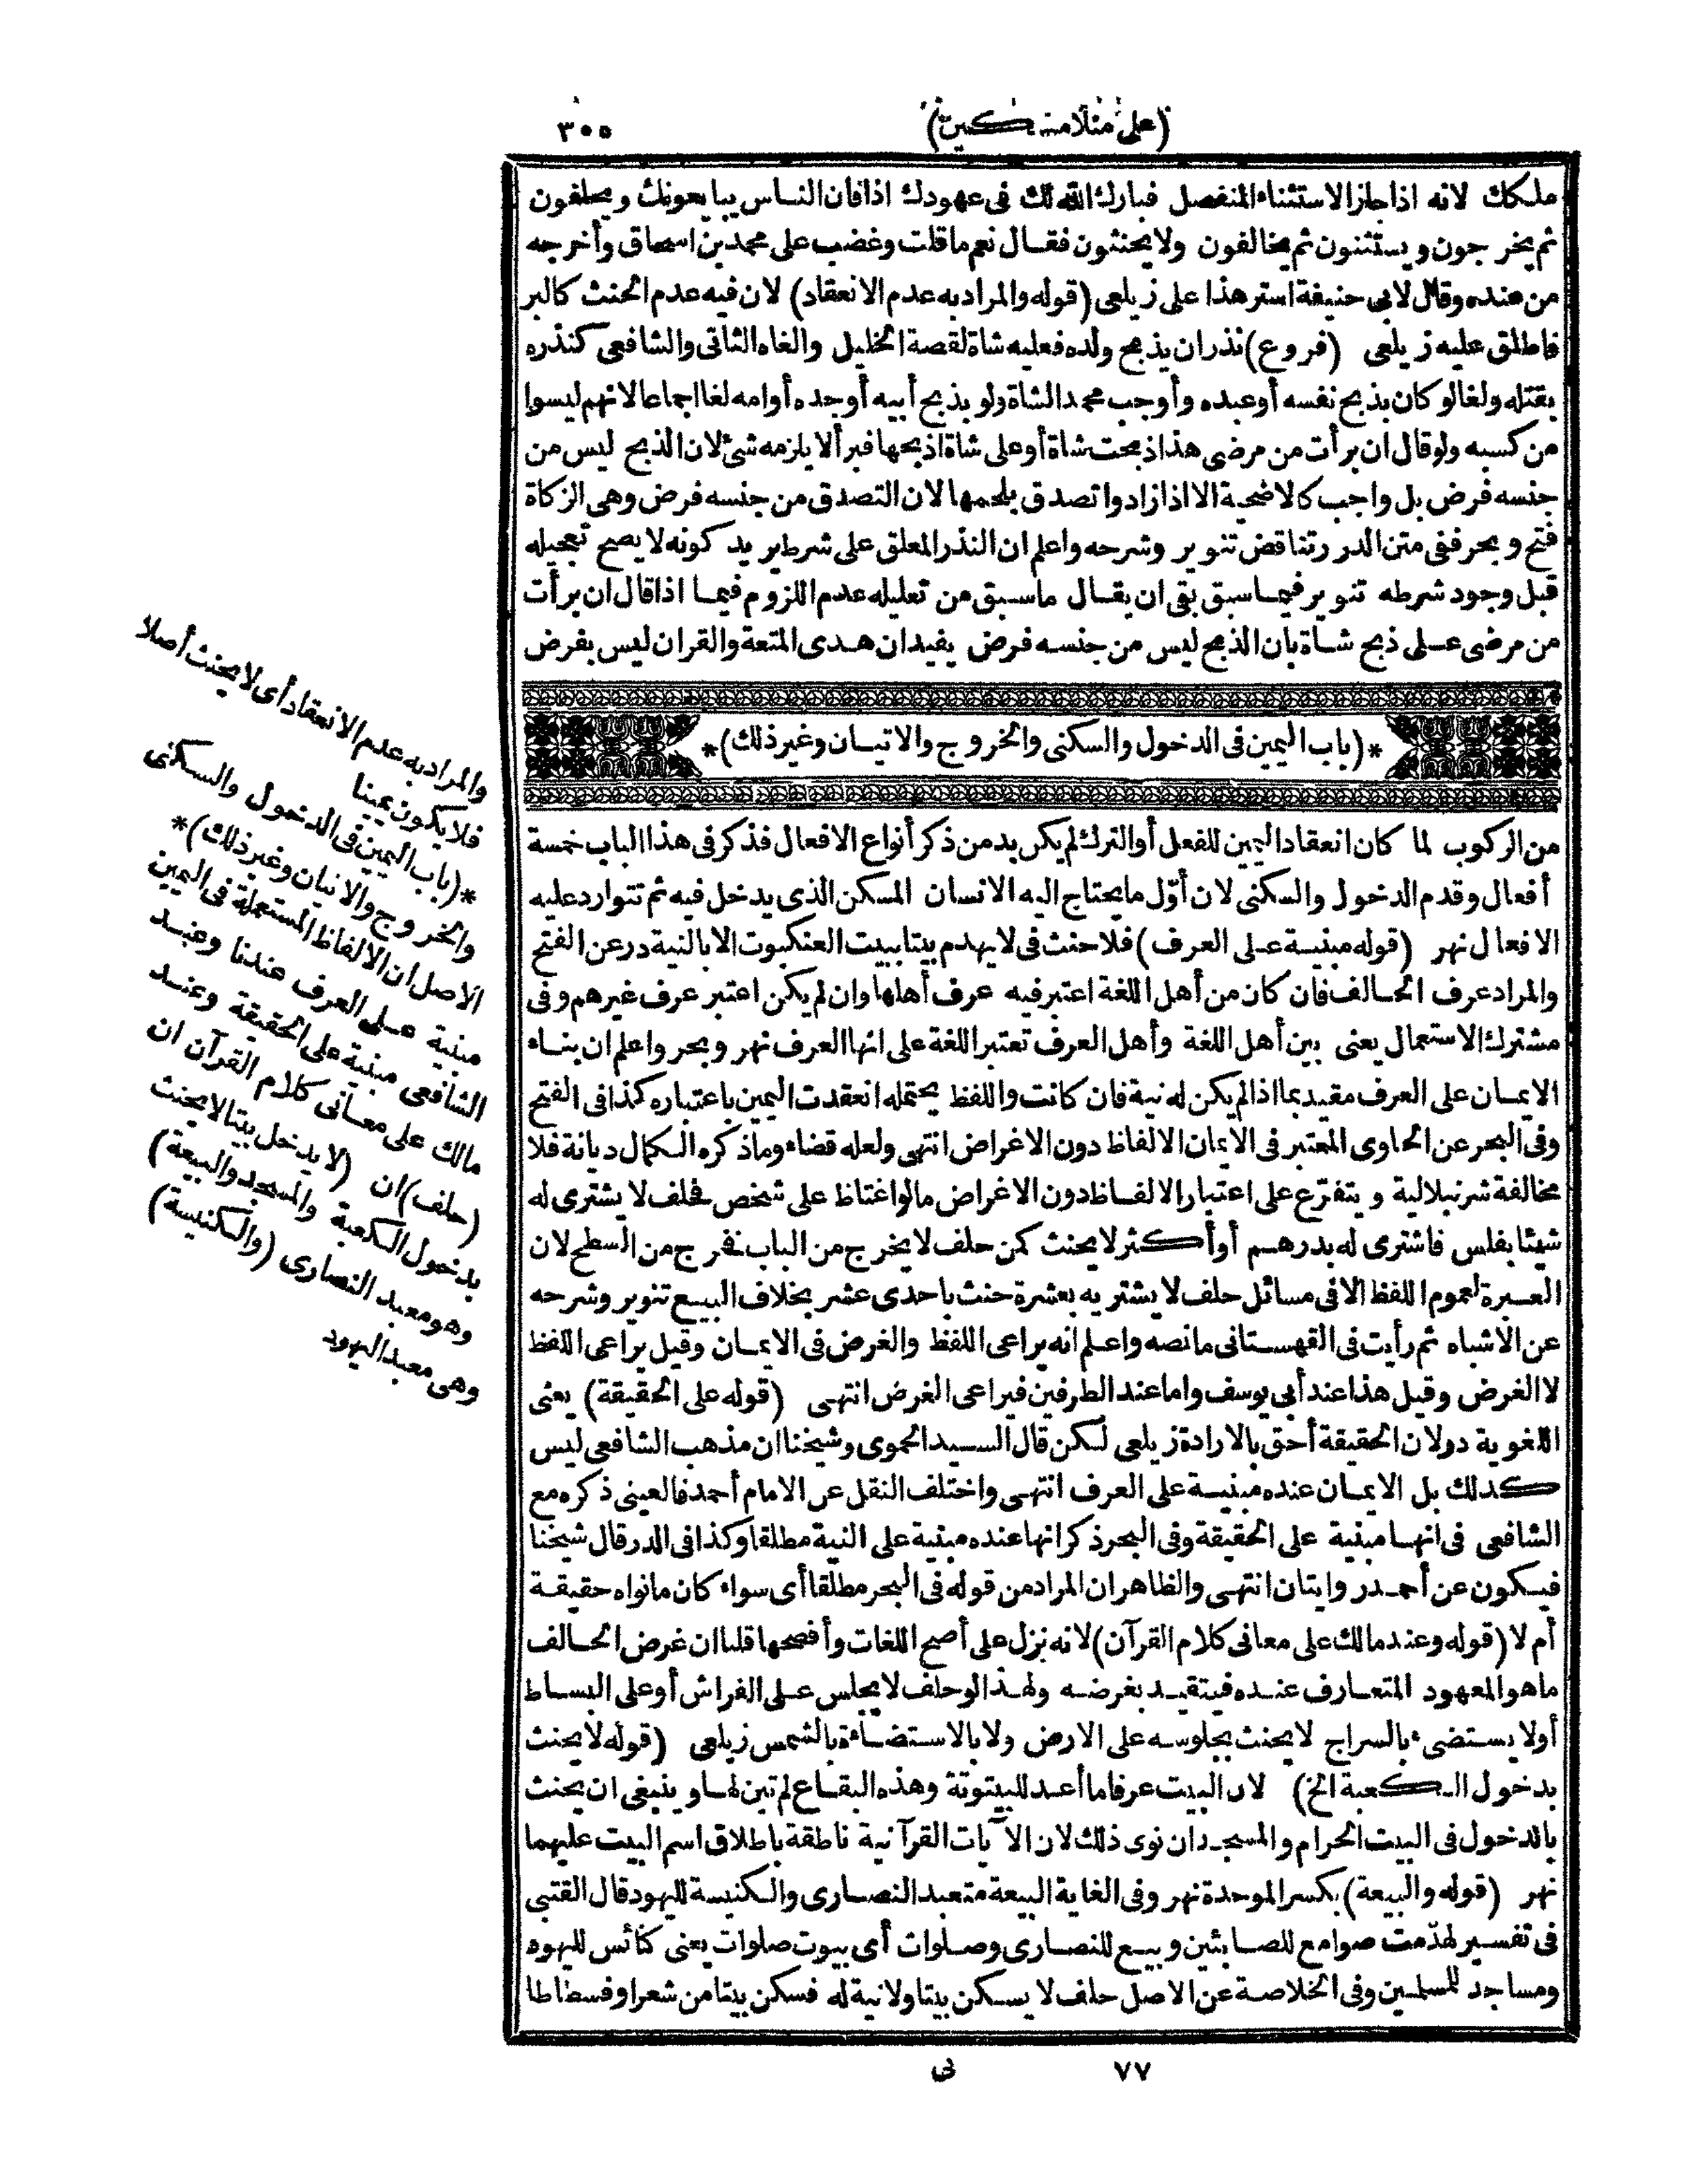 (على منلا مسكين)
٣٠٥
ملكك لانه اذا جاز الاستثناء المنفصل فبارك الله لك فى عهودك اذا فان الناس يبايعونك ويحلفون
ثم يخرجون ويستثنون ثم يخالفون ولا يحنثون فقال نعم ما قلت وغضب على محمد بن اسحاق وأخرجه
من عنده وقال لابى حنيفة استر هذا على زيلعى (قوله والمراد به عدم الانعقاد) لان فيه عدم الحنث كالبر
فاطلق عليه زيلعى (فروع) نذر ان يذبح ولده فعليه شاة لقصة الخليل والغاه الثانى والشافعى كنذره
بقتله ولغا لو كان بذبح نفسه أو عبده وأوجب محمد الشاة ولو بذبح أبيه أو جده أو امه لغا اجماعا لانهم ليسوا
من كسبه ولو قال ان برأت من مرضى هذا ذبحت شاة أو على شاة اذبحها فبرأ لا يلزمه شئ لان الذبح ليس من
جنسه فرض بل واجب كالاضحية الا اذا زاد واتصدق بلحمها لان التصدق من جنسه فرض وهى الزكاة
فتح وبحر ففى متن الدرر تناقض تنوير وشرحه واعلم ان النذر المعلق على شرط يريد كونه لا يصح تعجيله
قبل وجود شرطه تنوير فيما سبق بقى ان يقال ما سبق من تعليله عدم اللزوم فيما اذا قال ان برأت
من مرضى على ذبح شاة بان الذبح ليس من جنسه فرض يفيد ان هدى المتعة والقران ليس بفرض
*(باب اليمين فى الدخول والسكنى والخروج والاتيان وغير ذلك)*
من الركوب لما كان انعقاد اليمين للفعل أو الترك لم يكن بد من ذكر أنواع الافعال فذكر فى هذا الباب خمسة
أفعال وقدم الدخول والسكنى لان أوّل ما يحتاج اليه الانسان المسكن الذى يدخل فيه ثم تتوارد عليه
الافعال نهر (قوله مبنية على العرف) فلا حنث فى لا يهدم بيتا ببيت العنكبوت الا بالنية در عن الفتح
والمراد عرف الحالف فان كان من أهل اللغة اعتبر فيه عرف أهلها وان لم يكن اعتبر عرف غيرهم وفى
مشترك الاستعمال يعنى بين أهل اللغة وأهل العرف تعتبر اللغة على انها العرف نهر وبحر واعلم ان بناء
الايمان على العرف مقيد بما اذا لم يكن له نية فان كانت واللفظ يحتمله انعقدت اليمين باعتباره كذا فى الفتح
وفى البحر عن الحاوى المعتبر فى الايمان الالفاظ دون الاغراض انتهى ولعله قضاء وما ذكره الكمال ديانة فلا
مخالفة شرنبلالية ويتفرّع على اعتبار الالفاظ دون الاغراض ما لو اغتاظ على شخص فحلف لا يشترى له
شيئا بفلس فاشترى له بدرهم أو أكثر لا يحنث كمن حلف لا يخرج من الباب فخرج من السطح لان
العبرة لعموم اللفظ الا فى مسائل حلف لا يشتريه بعشرة حنث باحدى عشر بخلاف البيع تنوير وشرحه
عن الاشباه ثم رأيت فى القهستانى ما نصه واعلم انه يراعى اللفظ والغرض فى الايمان وقيل يراعى اللفظ
لا الغرض وقيل هذا عند أبى يوسف واما عند الطرفين فيراعى الغرض انتهى (قوله على الحقيقة) يعنى
اللغوية در لان الحقيقة أحق بالارادة زيلعى لكن قال السيد الحموى وشيخنا ان مذهب الشافعى ليس
كذلك بل الايمان عنده مبنية على العرف انتهى واختلف النقل عن الامام أحمد فالعينى ذكره مع
الشافعى فى انها مبنية على الحقيقة وفى البحر ذكر انها عنده مبنية على النية مطلقا وكذا فى الدر قال شيخنا
فيكون عن أحمد روايتان انتهى والظاهر ان المراد من قوله فى البحر مطلقا أى سواء كان ما نواه حقيقة
أم لا (قوله وعند مالك على معانى كلام القرآن) لانه نزل على أصح اللغات وأفصحها قلنا ان غرض الحالف
ما هو المعهود المتعارف عنده فيتقيد بغرضه ولهذا لو حلف لا يجلس على الفراش أو على البساط
أو لا يستضىء بالسراج لا يحنث بجلوسه على الارض ولا بالاستضاءة بالشمس زيلعى (قوله لا يحنث
بدخول الكعبة الخ) لان البيت عرفا ما أعد للبيتوتة وهذه البقاع لم تبن لها وينبغى ان يحنث
بالدخول فى البيت الحرام والمسجد ان نوى ذلك لان الآيات القرآنية ناطقة باطلاق اسم البيت عليهما
نهر (قوله والبيعة) بكسر الموحدة نهر وفى الغاية البيعة متعبد النصارى والكنيسة لليهود قال القتبى
فى تفسير لهدّمت صوامع للصابئين وبيع للنصارى وصلوات أى بيوت صلوات يعنى كنائس لليهود
ومساجد للمسلمين وفى الخلاصة عن الاصل حلف لا يسكن بيتا ولا نية له فسكن بيتا من شعر او فسطاطا
والمراد به عدم الانعقاد أى لا يحنث أصلا
فلا يكون يمينا
*(باب اليمين فى الدخول والسكنى
والخروج والاتيان وغير ذلك)*
الاصل ان الالفاظ المستعملة فى اليمين
مبنية على العرف عندنا وعند
الشافعى مبنية على الحقيقة وعند
مالك على معانى كلام القرآن ان
(حلف) ان (لا يدخل بيتا لا يحنث
بدخول الكعبة والمسجد والبيعة)
وهو معبد النصارى (والكنيسة)
وهى معبد اليهود
٧٧
نى